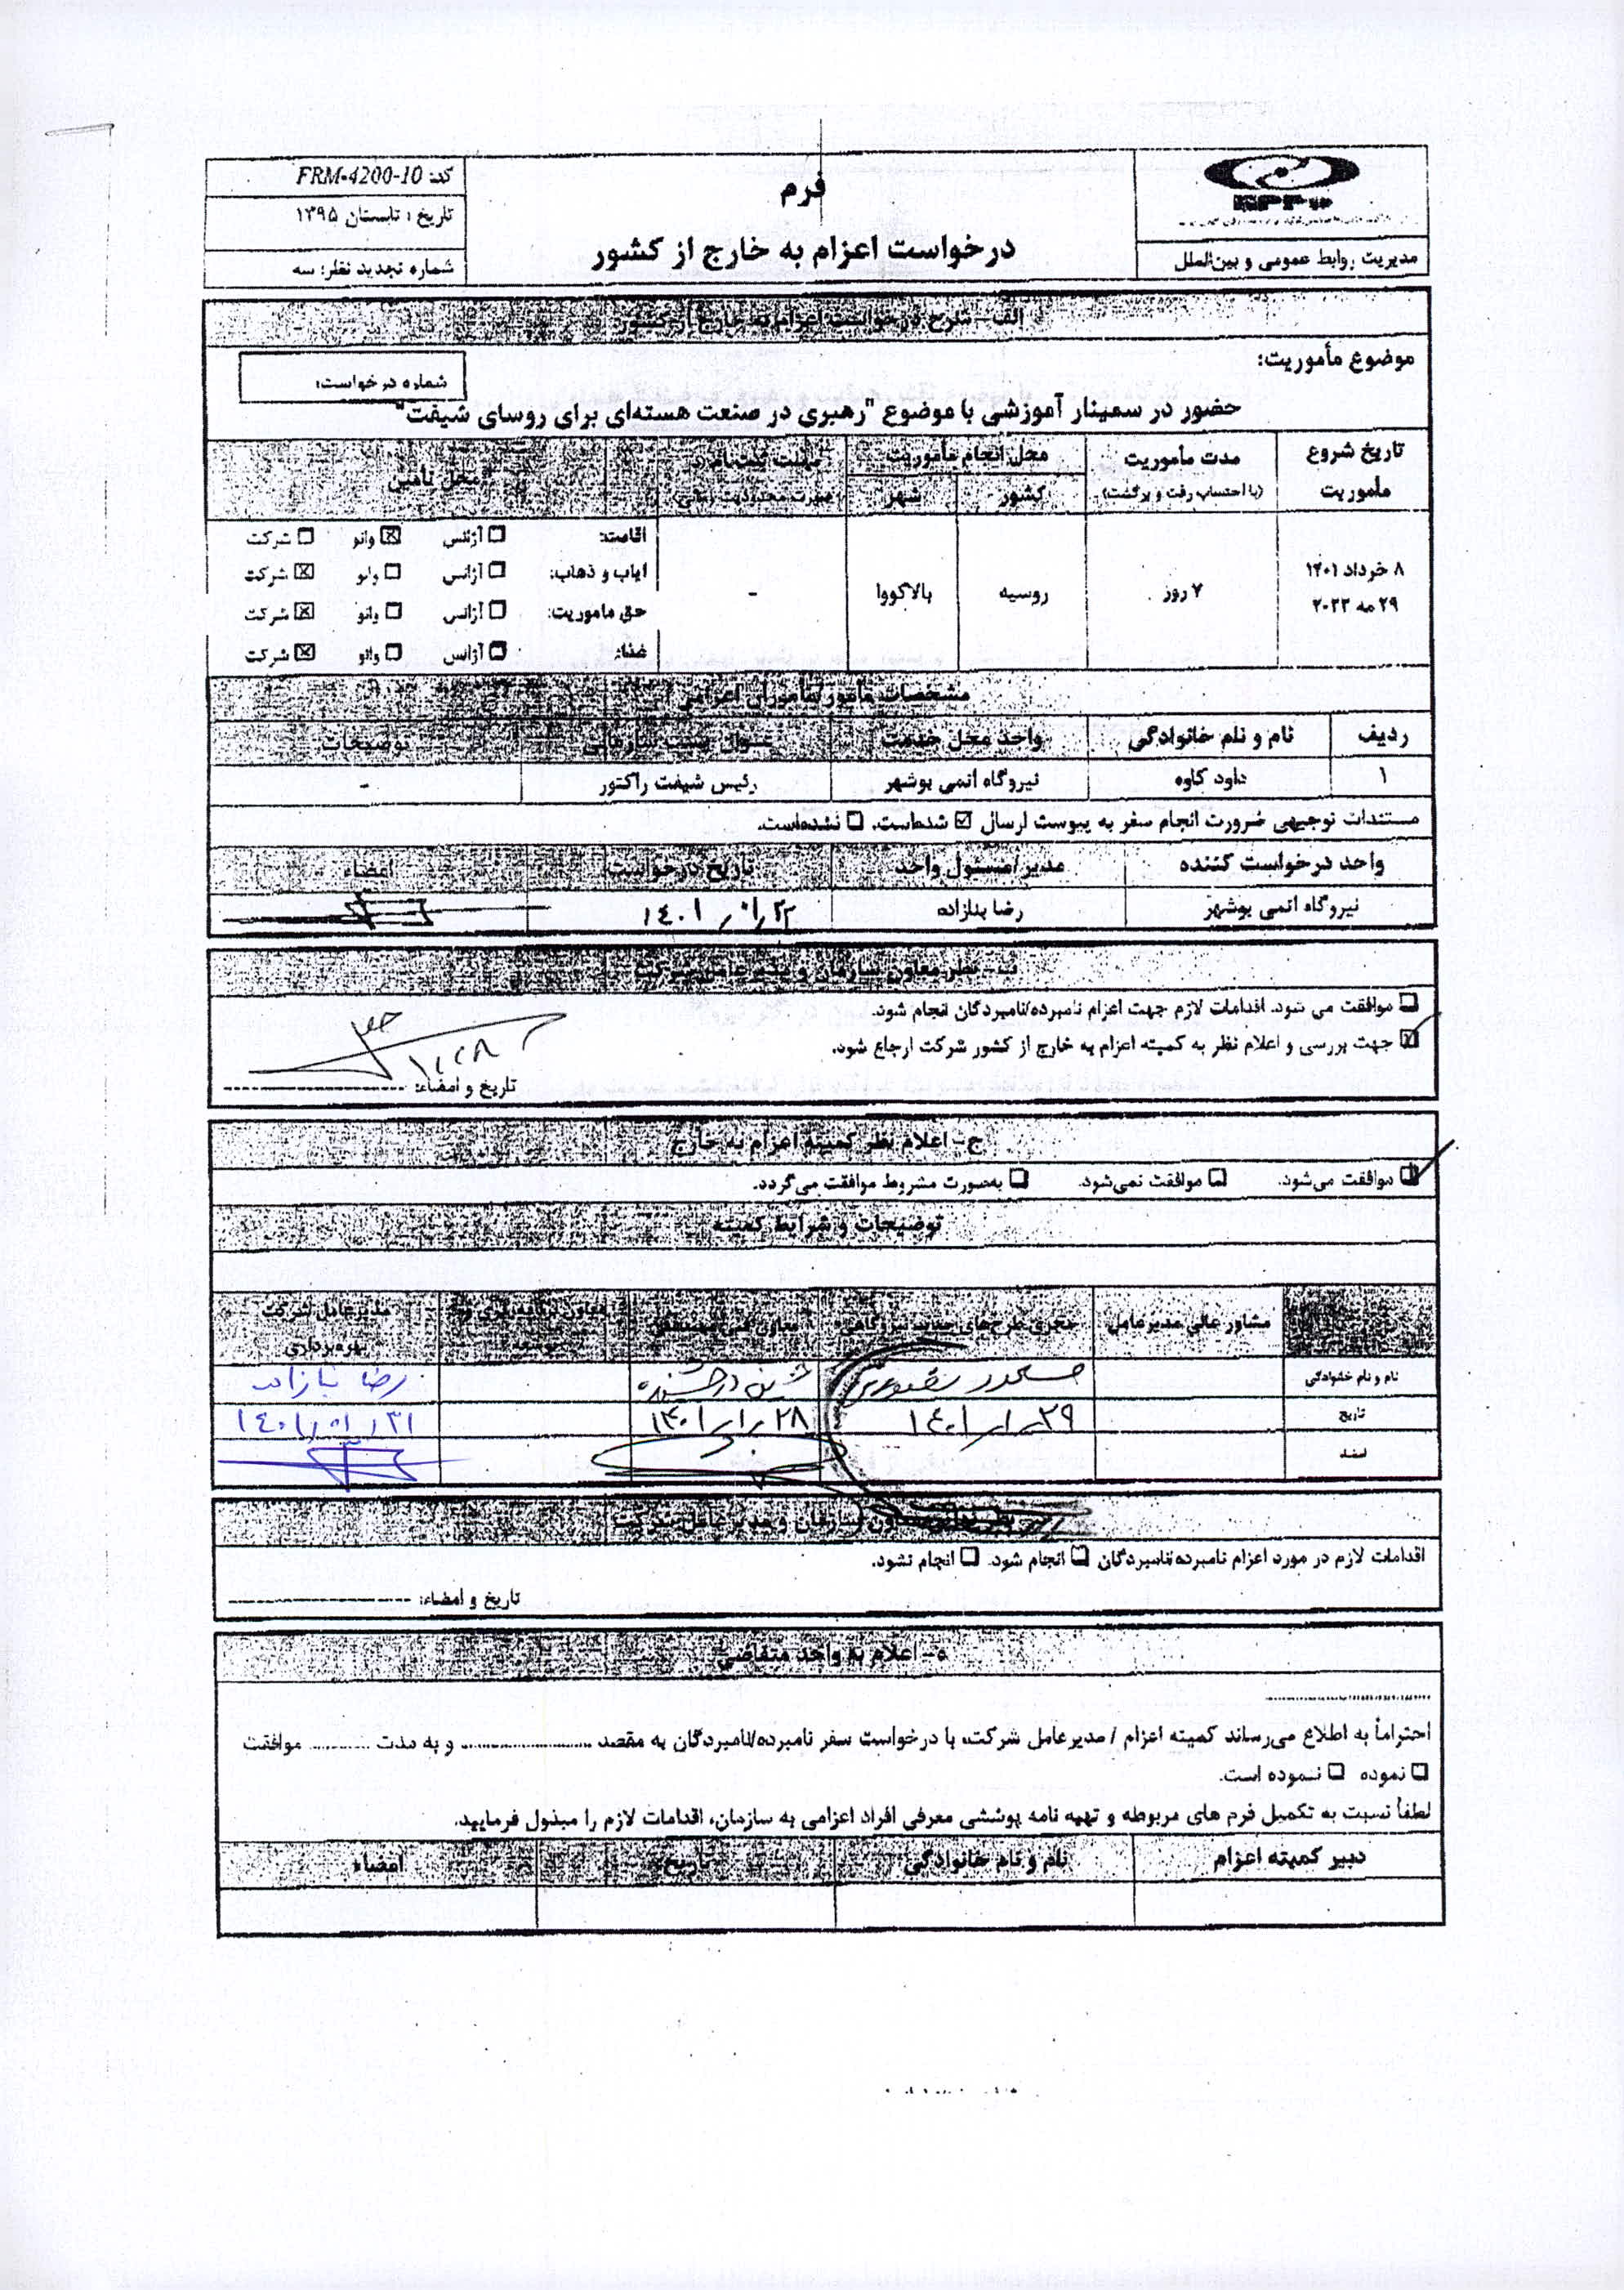 کد: FRM-4200-10
تاریخ: تابستان ۱۳۹۵
شماره تجدید نظر: سه
فرم
درخواست اعزام به خارج از کشور
مدیریت روابط عمومی و بین‌الملل
الف- شرح درخواست اعزام به خارج از کشور
موضوع مأموریت:
شماره درخواست:
حضور در سمینار آموزشی با موضوع "رهبری در صنعت هسته‌ای برای روسای شیفت"
تاریخ شروع مأموریت
مدت مأموریت (با احتساب رفت و برگشت)
محل انجام مأموریت
کشور
شهر
مهلت ثبت‌نام در صورت محدودیت زمانی
محل تأمین
۸ خرداد ۱۴۰۱
۲۹ مه ۲۰۲۲
۷ روز
روسیه
بالاکووا
-
اقامت: ☐ آژانس ☒ وانو ☐ شرکت
ایاب و ذهاب: ☐ آژانس ☐ وانو ☒ شرکت
حق ماموریت: ☐ آژانس ☐ وانو ☒ شرکت
غذا: ☐ آژانس ☐ وانو ☒ شرکت
مشخصات مأمور/مأموران اعزامی
ردیف نام و نام خانوادگی واحد محل خدمت عنوان پست سازمانی توضیحات
۱ داود کاوه نیروگاه اتمی بوشهر رئیس شیفت راکتور -
مستندات توجیهی ضرورت انجام سفر به پیوست ارسال ☑ شده‌است. ☐ نشده‌است.
واحد درخواست کننده مدیر/مسئول واحد تاریخ درخواست امضاء
نیروگاه اتمی بوشهر رضا بنازاده ۱۴۰۱/۰۱/۲۲
ب- نظر معاون سازمان و مدیر عامل شرکت
☐ موافقت می شود. اقدامات لازم جهت اعزام نامبرده/نامبردگان انجام شود.
☑ جهت بررسی و اعلام نظر به کمیته اعزام به خارج از کشور شرکت ارجاع شود.
تاریخ و امضاء:
ج- اعلام نظر کمیته اعزام به خارج
☑ موافقت می‌شود. ☐ موافقت نمی‌شود. ☐ به‌صورت مشروط موافقت می‌گردد.
توضیحات و شرایط کمیته
مشاور عالی مدیرعامل مجری طرح‌های جدید نیروگاهی معاون فنی مهندسی معاون برنامه‌ریزی و توسعه مدیرعامل شرکت بهره‌برداری
نام و نام خانوادگی مسعود درخشنده رضا بنازاده
تاریخ ۱۴۰۱/۱/۲۹ ۱۴۰۱/۱/۲۸ ۱۴۰۱/۰۱/۳۱
امضاء
نظر نهایی معاون سازمان و مدیر عامل شرکت
اقدامات لازم در مورد اعزام نامبرده/نامبردگان ☐ انجام شود. ☐ انجام نشود.
تاریخ و امضاء:
ه- اعلام به واحد متقاضی
احتراماً به اطلاع می‌رساند کمیته اعزام / مدیرعامل شرکت، با درخواست سفر نامبرده/نامبردگان به مقصد .................... و به مدت .......... موافقت
☐ نموده ☐ ننموده است.
لطفاً نسبت به تکمیل فرم های مربوطه و تهیه نامه پوششی معرفی افراد اعزامی به سازمان، اقدامات لازم را مبذول فرمایید.
دبیر کمیته اعزام نام و نام خانوادگی تاریخ امضاء